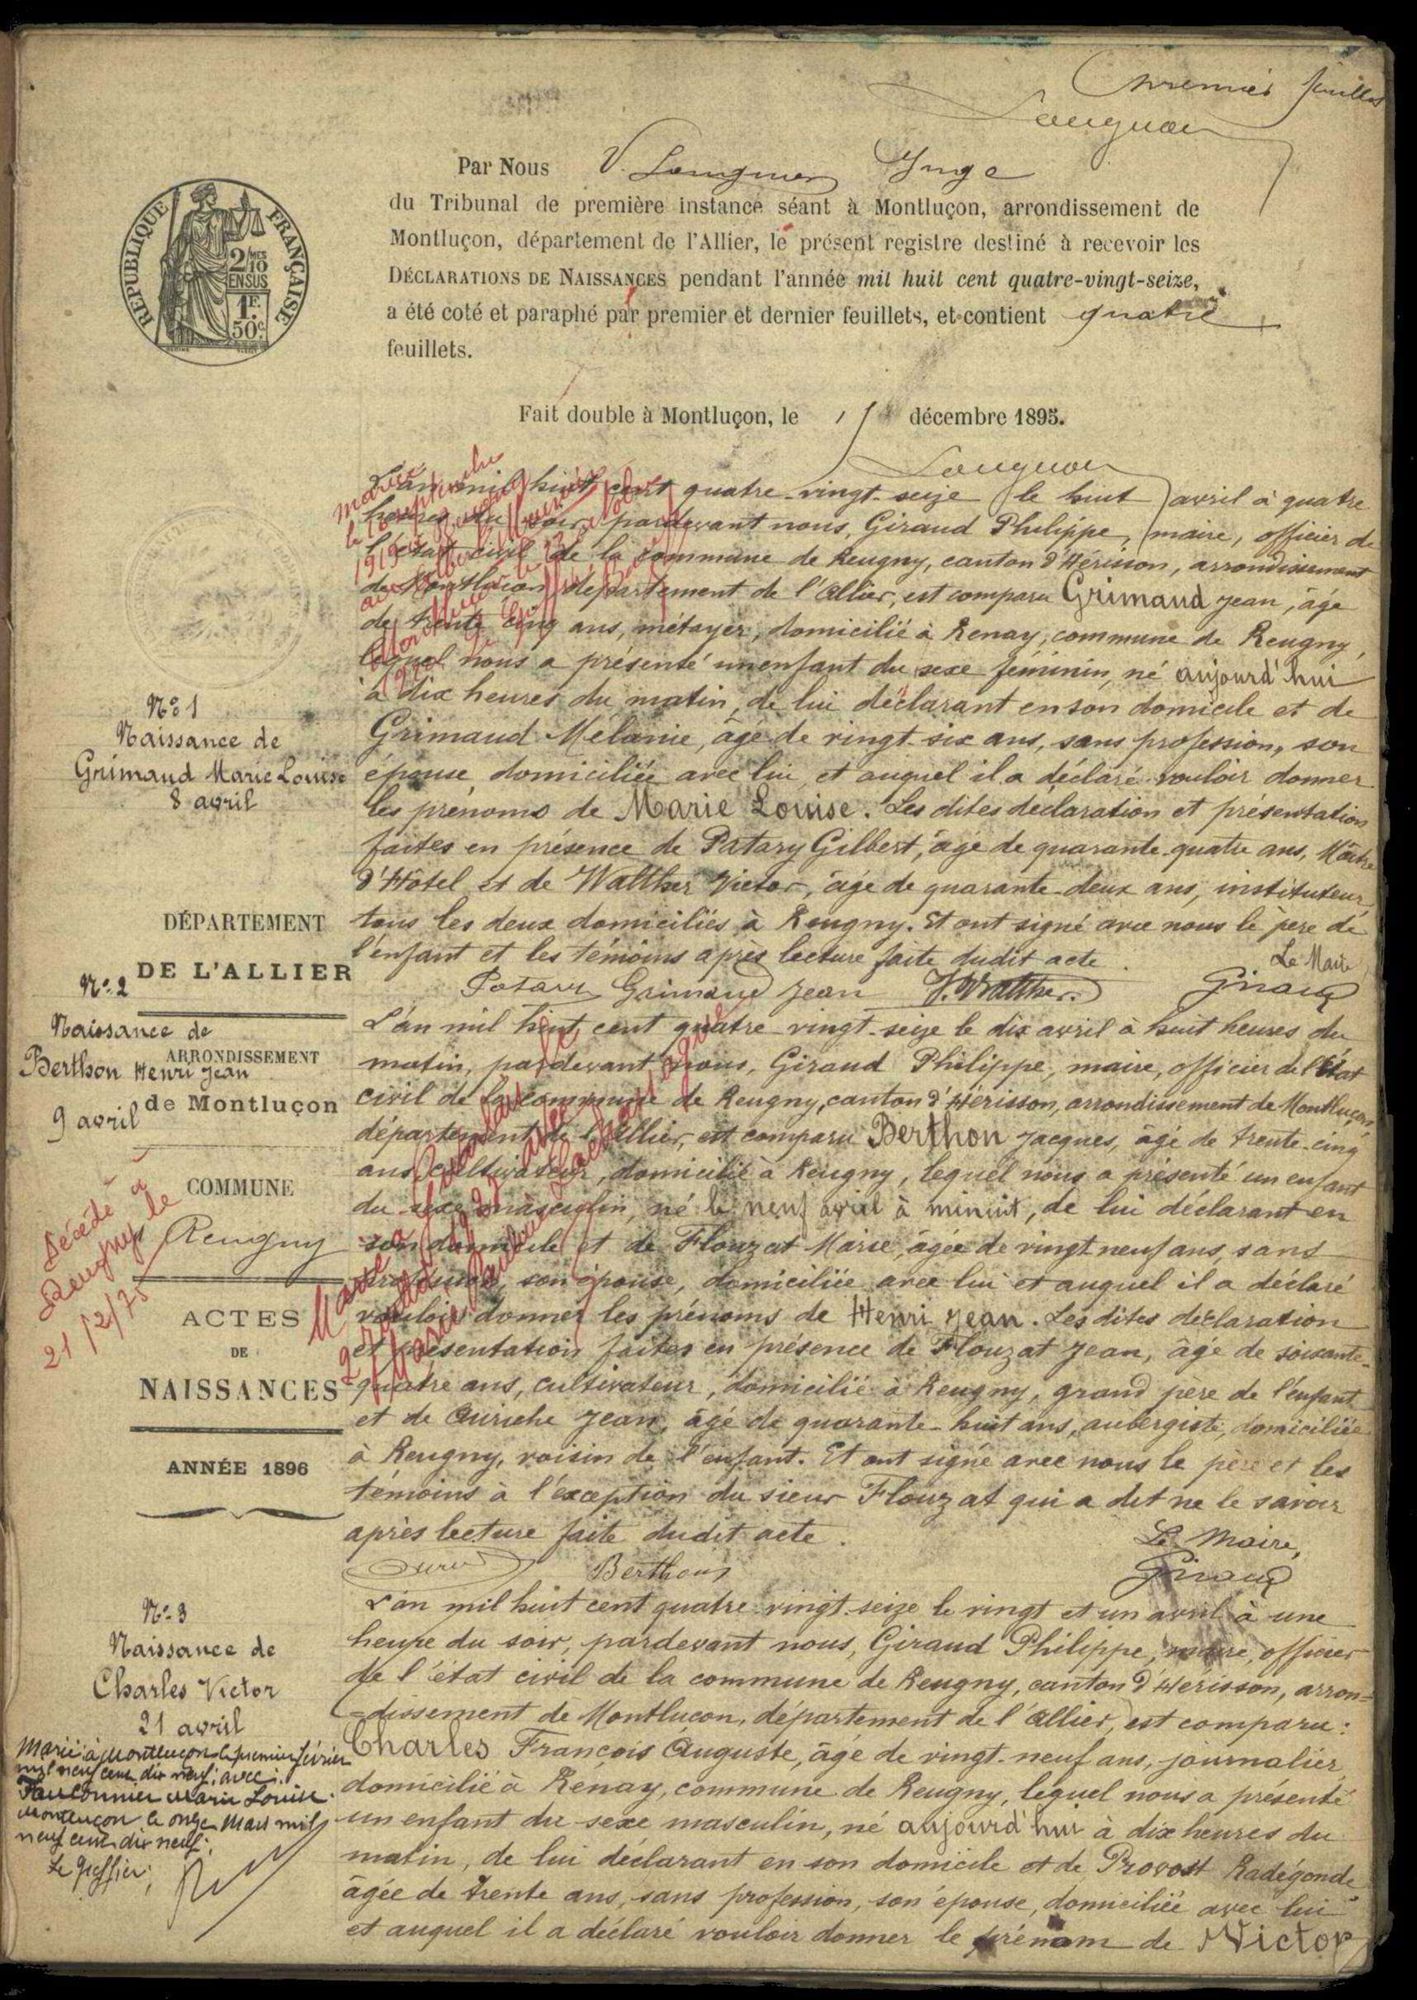 premier feuillet
RÉPUBLIQUE FRANÇAISE
2/10 MES
EN SUS
1 F.
50 c.
Par Nous V. Juge
du Tribunal de première instance séant à Montluçon, arrondissement de
Montluçon, département de l'Allier, le présent registre destiné à recevoir les
DÉCLARATIONS DE NAISSANCES pendant l'année mil huit cent quatre-vingt-seize,
a été coté et paraphé par premier et dernier feuillets, et contient quatre
feuillets.
Fait double à Montluçon, le décembre 1895.
L'an mil huit cent quatre-vingt-seize le huit avril à quatre
heures du soir, pardevant nous, Giraud Philippe, maire, officier de
l'état civil de la commune de Reugny, canton d'Hérisson, arrondissement
de Montluçon département de l'Allier, est comparu Grimaud Jean, âgé
de trente cinq ans, métayer, domicilié à Renay, commune de Reugny,
lequel nous a présenté un enfant du sexe féminin, né aujourd'hui
à dix heures du matin, de lui déclarant en son domicile et de
Grimaud Mélanie, âgé de vingt-six ans, sans profession, son
épouse domiciliée avec lui et auquel il a déclaré vouloir donner
les prénoms de Marie Louise. Les dites déclaration et présentation
faites en présence de Patary Gilbert, âgé de quarante-quatre ans, Maître
d'Hôtel et de Walther Victor, âgé de quarante-deux ans, instituteur,
tous les deux domiciliés à Reugny. Et ont signé avec nous le père de
l'enfant et les témoins après lecture faite dudit acte.
Le Maire
Grimaud Jean V. Walther Giraud
No 1
Naissance de
Grimaud Marie Louise
8 avril
DÉPARTEMENT
DE L'ALLIER
No 2
Naissance de
ARRONDISSEMENT
Berthon Henri Jean
de Montluçon
9 avril
COMMUNE
Reugny
Décédé à
Reugny le
21/2/75
ACTES
DE
NAISSANCES
ANNÉE 1896
L'an mil huit cent quatre-vingt-seize le dix avril à huit heures du
matin, pardevant nous, Giraud Philippe, maire, officier de l'état
civil de la commune de Reugny, canton d'Hérisson, arrondissement de Montluçon,
département de l'Allier, est comparu Berthon Jacques, âgé de trente-cinq
ans, cultivateur, domicilié à Reugny, lequel nous a présenté un enfant
du sexe masculin, né le neuf avril à minuit, de lui déclarant en
son domicile et de Flouzat Marie, âgée de vingt neuf ans, sans
profession, son épouse, domiciliée avec lui et auquel il a déclaré
vouloir donner les prénoms de Henri Jean. Les dites déclaration
et présentation faites en présence de Flouzat Jean, âgé de soixante-
quatre ans, cultivateur, domicilié à Reugny, grand père de l'enfant
et de Jean, âgé de quarante-huit ans, aubergiste, domiciliée
à Reugny, voisin de l'enfant. Et ont signé avec nous le père et les
témoins à l'exception du sieur Flouzat qui a dit ne le savoir
après lecture faite dudit acte.
Le Maire,
Berthon Giraud
No 3
Naissance de
Charles Victor
21 avril
Marié à Montluçon le premier février
mil neuf cent dix neuf, avec
Marie Louise.
Montluçon le onze Mars mil
neuf cent dix neuf.
Le greffier,
L'an mil huit cent quatre-vingt-seize le vingt et un avril à une
heure du soir, pardevant nous, Giraud Philippe, maire, officier
de l'état civil de la commune de Reugny, canton d'Hérisson, arron-
-dissement de Montluçon, département de l'Allier, est comparu:
Charles François Auguste, âgé de vingt-neuf ans, journalier,
domicilié à Renay, commune de Reugny, lequel nous a présenté
un enfant du sexe masculin, né aujourd'hui à dix heures du
matin, de lui déclarant en son domicile et de Provost Radégonde
âgée de trente ans, sans profession, son épouse, domiciliée avec lui
et auquel il a déclaré vouloir donner le prénom de Victor